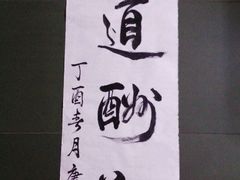 道酬
丁酉春月